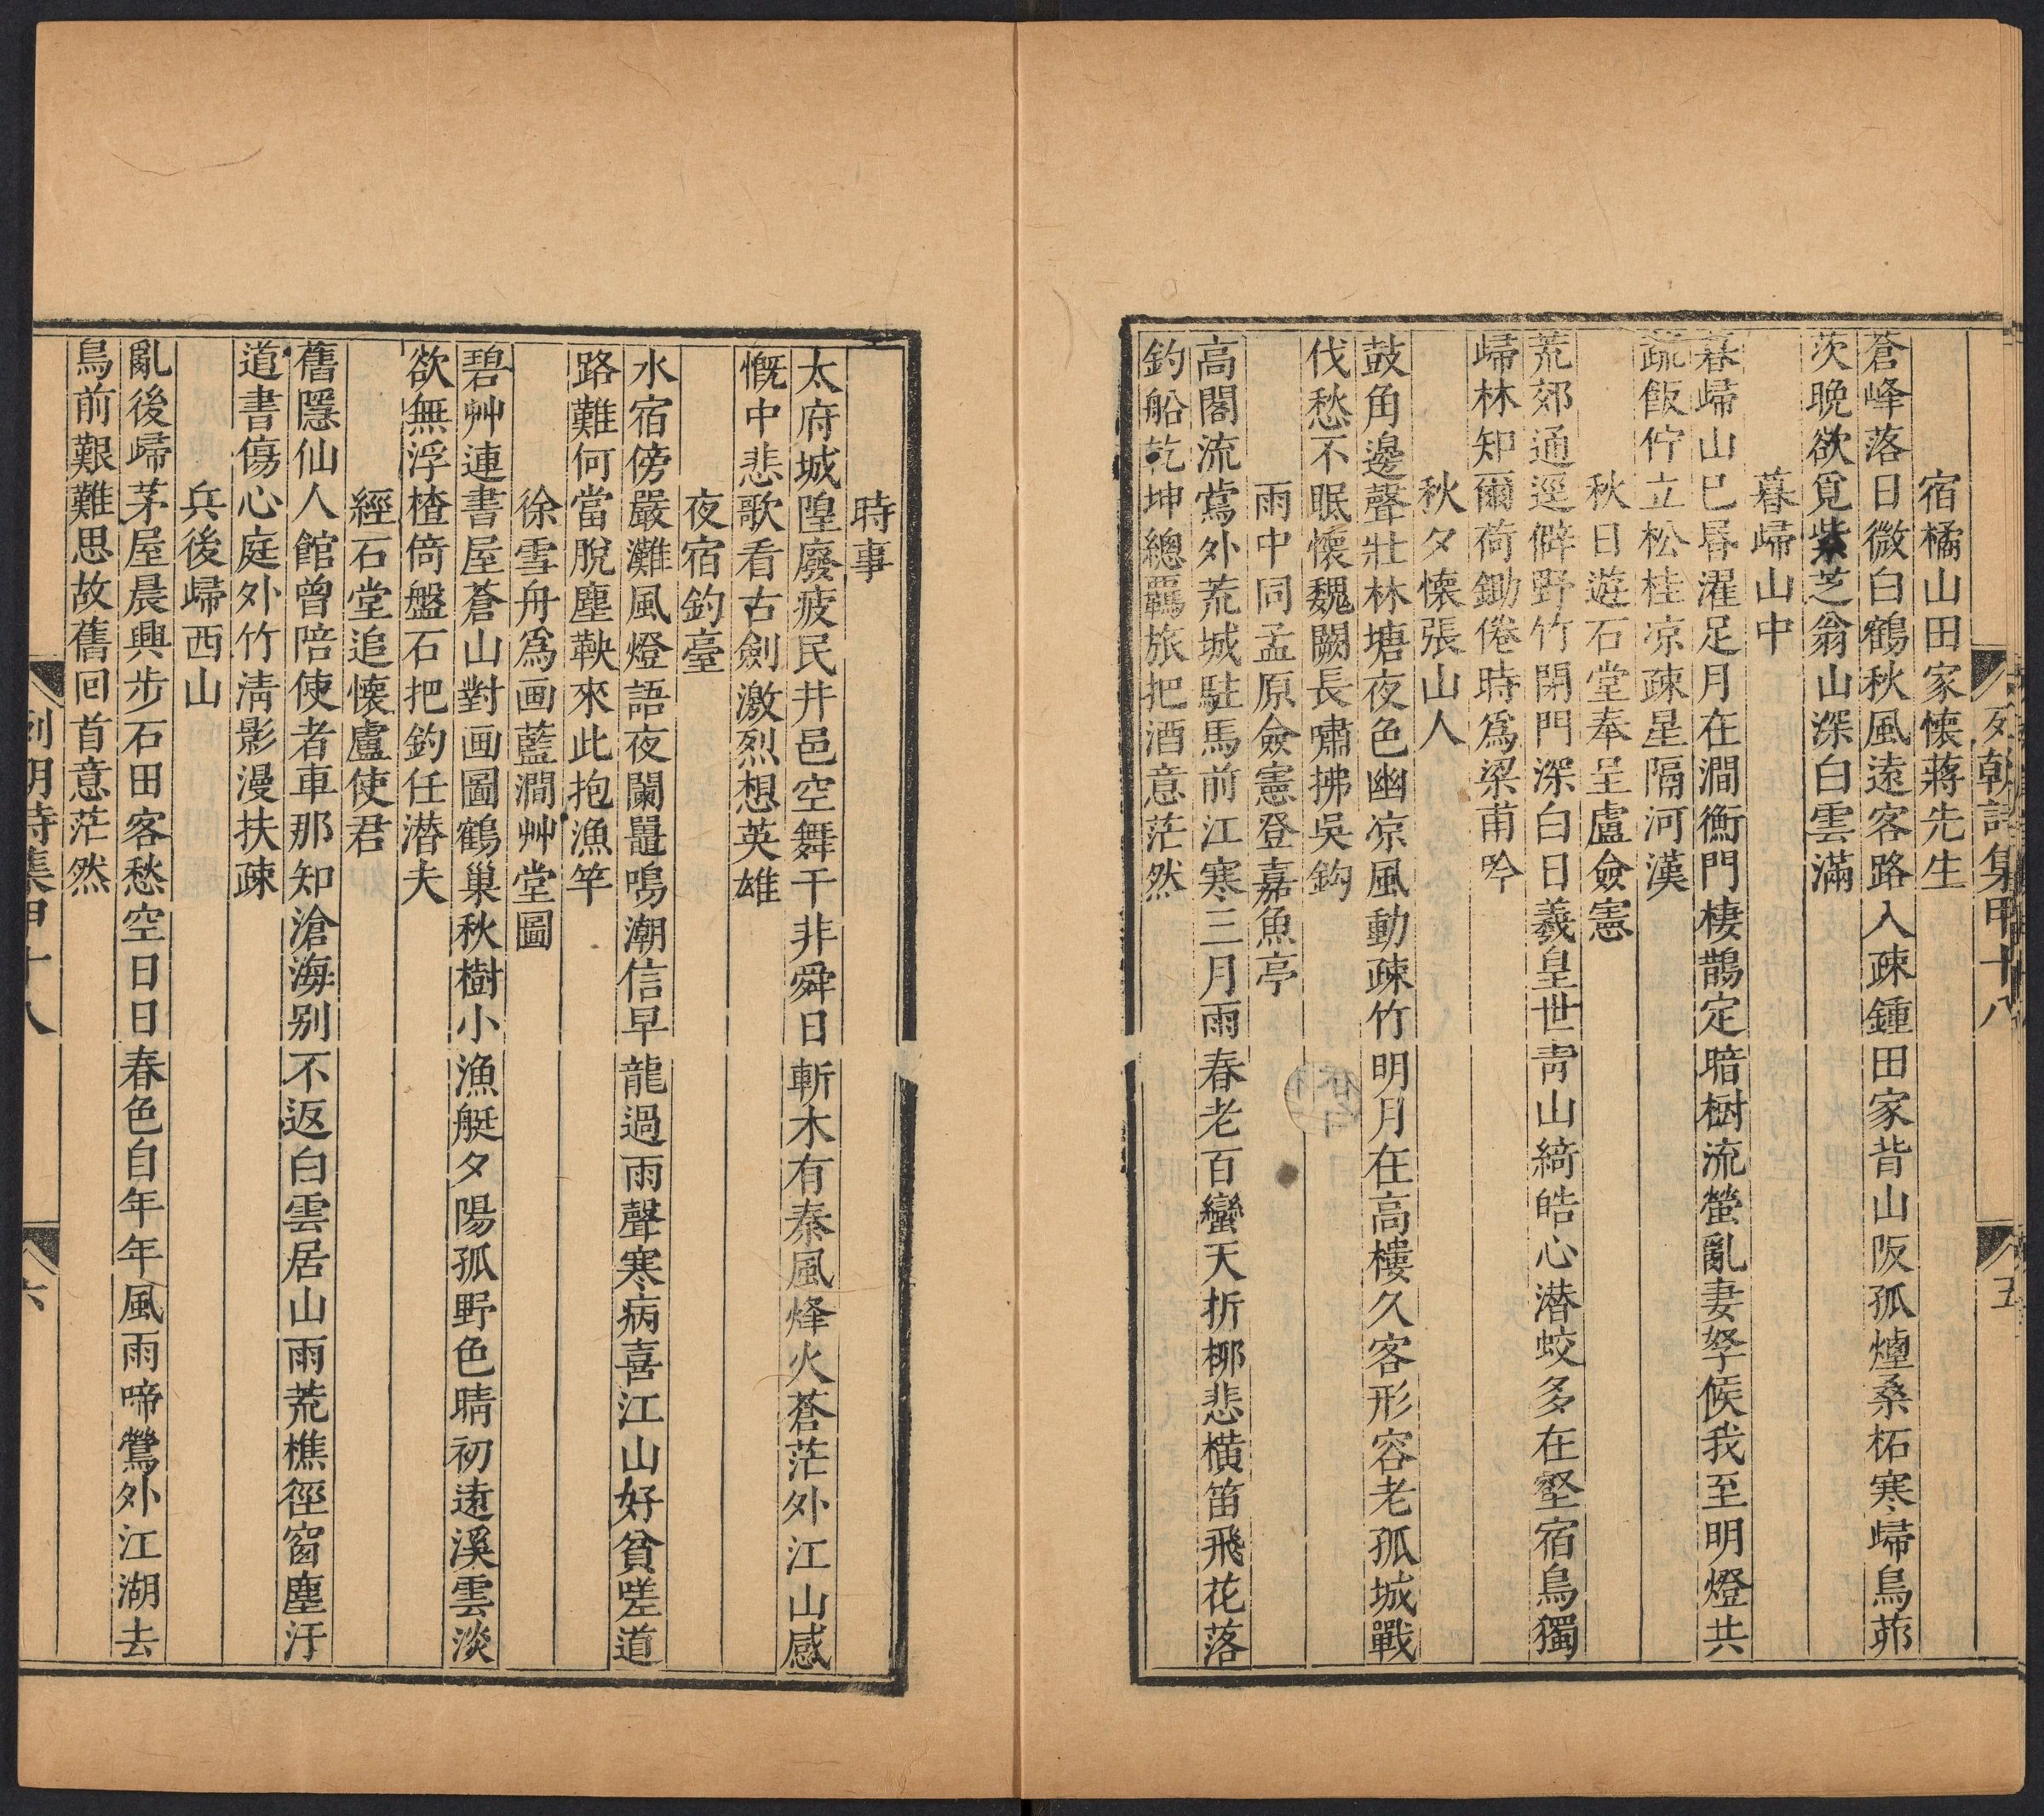 列朝詩集甲十八
五
宿橘山田家懷蔣先生
蒼峰落日微白鶴秋風遠客路入疎鍾田家背山阪孤煙桑柘寒歸鳥茆
茨晚欲覓紫芝翁山深白雲滿
暮歸山中
暮歸山已昏濯足月在澗衡門棲鵲定暗樹流螢亂妻孥候我至明燈共
蔬飯佇立松桂凉疎星隔河漢
秋日遊石堂奉呈盧僉憲
荒郊通逕僻野竹閉門深白日羲皇世靑山綺皓心潛蛟多在壑宿鳥獨
歸林知爾荷鋤倦時爲梁甫吟
秋夕懷張山人
鼓角邊聲壯林塘夜色幽凉風動疎竹明月在高樓久客形容老孤城戰
伐愁不眠懷魏闕長嘯拂吳鈎
雨中同孟原僉憲登嘉魚亭
高閣流鶯外荒城駐馬前江寒三月雨春老百蠻天折柳悲橫笛飛花落
釣船乾坤總羈旅把酒意茫然
時事
太府城隍廢疲民井邑空舞干非舜日斬木有秦風烽火蒼茫外江山感
慨中悲歌看古劍激烈想英雄
夜宿釣臺
水宿傍嚴灘風燈語夜闌鼉鳴潮信早龍過雨聲寒病喜江山好貧嗟道
路難何當脫塵鞅來此抱漁竿
徐雪舟爲画藍澗艸堂圖
碧艸連書屋蒼山對画圖鶴巢秋樹小漁艇夕陽孤野色晴初遠溪雲淡
欲無浮楂倚盤石把釣任潛夫
經石堂追懷盧使君
舊隱仙人館曾陪使者車那知滄海别不返白雲居山雨荒樵徑窗塵汙
道書傷心庭外竹淸影漫扶疎
兵後歸西山
亂後歸茅屋晨興步石田客愁空日日春色自年年風雨啼鶯外江湖去
鳥前艱難思故舊回首意茫然
列朝詩集甲十八
六